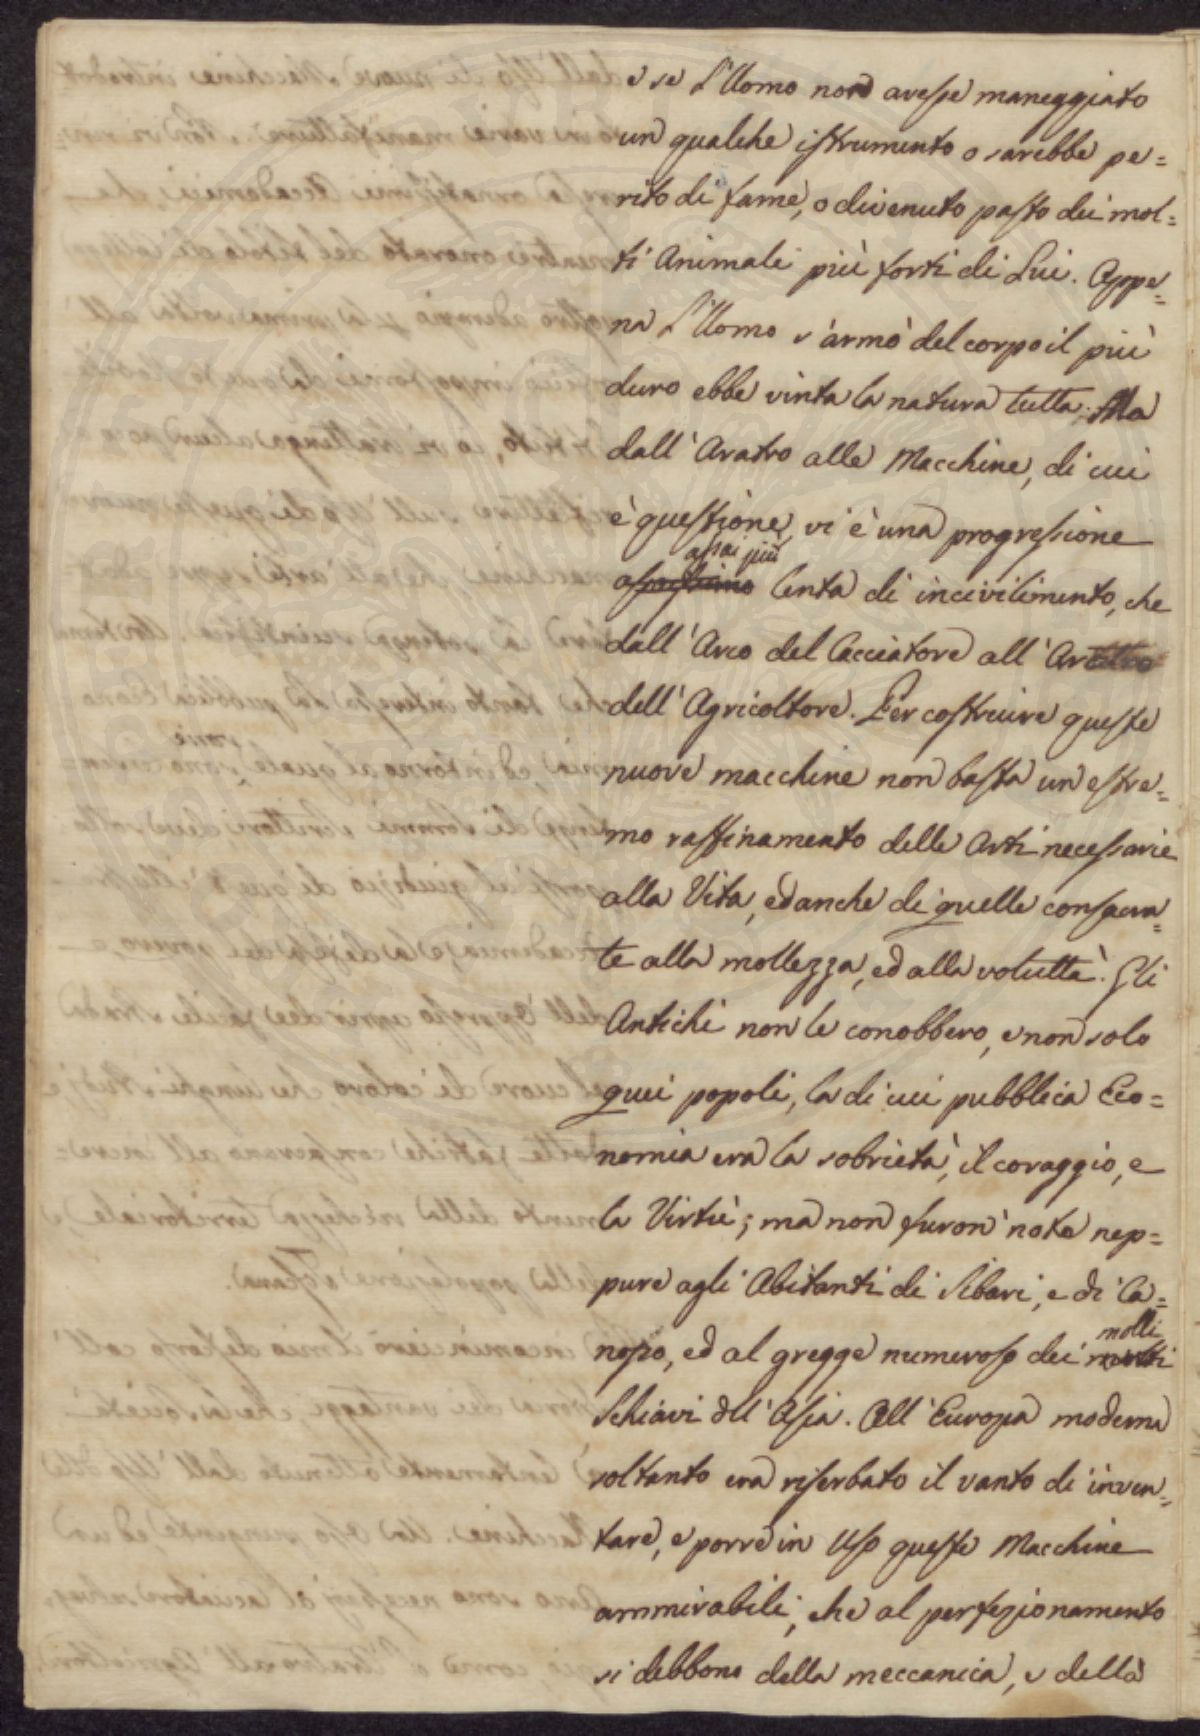 e se l'Uomo non avesse maneggiato
un qualche istrumento o sarebbe pe=
rito di fame, o divenuto pasto dei mol=
ti Animali più forti di Lui. Appe=
na l'Uomo s'armò del corpo il più
duro ebbe vinta la natura tutta; Ma
dall'Aratro alle Macchine, di cui
è questione, vi è una progressione
assai più
lenta di incivilimento, che
dall'Arco del Cacciatore all'Aratro
dell'Agricoltore. Per costruire queste
nuove macchine non basta un estre=
mo raffinamento delle Arti necessarie
alla Vita, ed anche di quelle consacra=
te alla mollezza, ed alla voluttà. Gli
Antichi non le conobbero, e non solo
quei popoli, la di cui pubblica Eco=
nomia era la sobrietà, il coraggio, e
la Virtù; ma non furon note nep=
pure agli Abitanti di Sibari, e di Ca=
nopo, ed al gregge numeroso dei molli
Schiavi dell'Asia. All'Europa moderna
soltanto era riserbato il vanto di inven=
tare, e porre in Uso queste Macchine
ammirabili, che al perfezionamento
si debbono della meccanica, e della